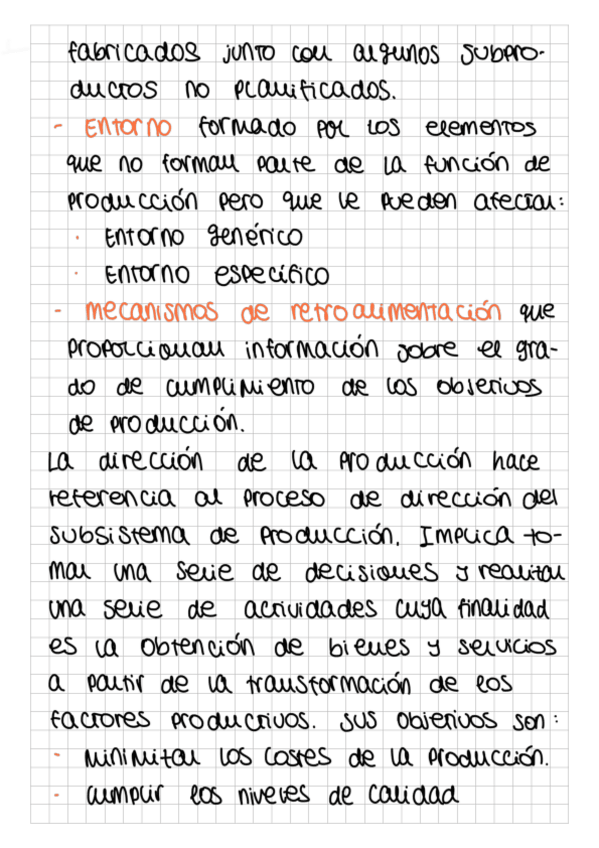 fabricados junto con algunos subpro-
ductos no planificados.
- Entorno formado por los elementos
que no forman parte de la función de
producción pero que le pueden afectar:
· Entorno genérico
· Entorno específico
- Mecanismos de retroalimentación que
proporcionan información sobre el gra-
do de cumplimiento de los objetivos
de producción.
La dirección de la producción hace
referencia al proceso de dirección del
subsistema de producción. Implica to-
mar una serie de decisiones y realizar
una serie de actividades cuya finalidad
es la obtención de bienes y servicios
a partir de la transformación de los
factores productivos. Sus objetivos son:
- Minimizar los costes de la producción.
- Cumplir los niveles de calidad